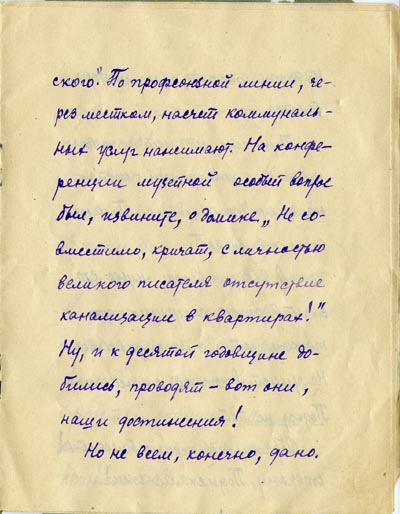 ского". По профсоюзной линии, че-
рез местком, насчет коммуналь-
ных услуг нажимают. На конфе-
ренции музейной особый вопрос
был, извините, о домике „Не со-
вместимо, кричат, с личностью
великого писателя отсутствие
канализации в квартирах!"
Ну, и к десятой годовщине до-
бились, проводят – вот они,
наши достижения!
Но не всем, конечно, дано.